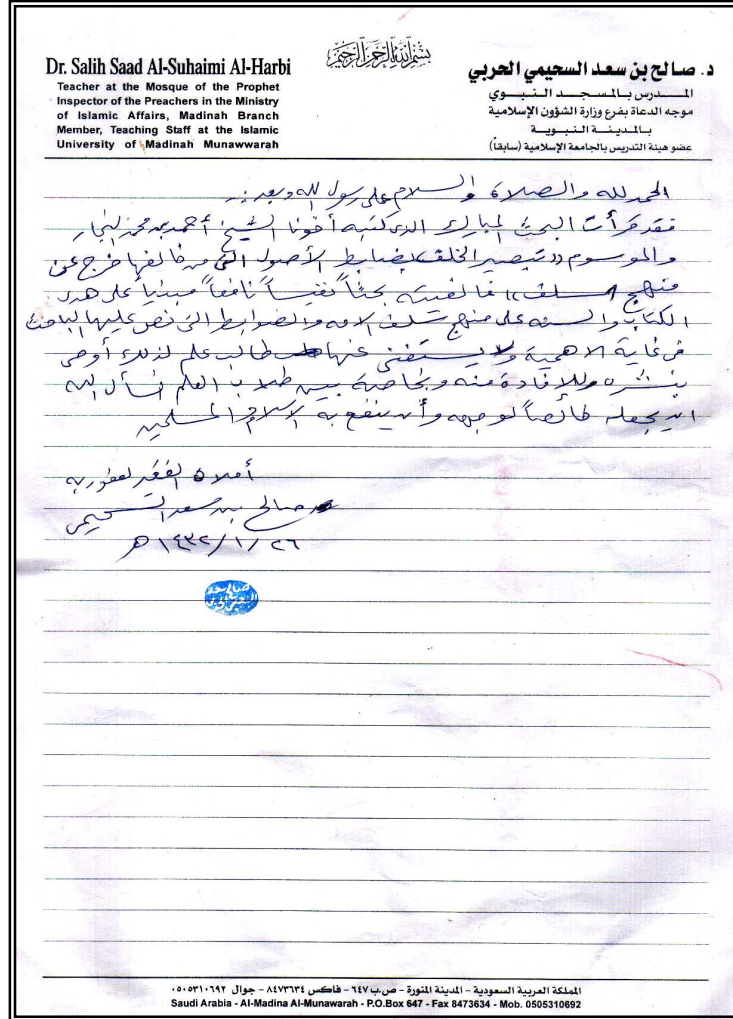 بسم الله الرحمن الرحيم
Dr. Salih Saad Al-Suhaimi Al-Harbi
Teacher at the Mosque of the Prophet
Inspector of the Preachers in the Ministry
of Islamic Affairs, Madinah Branch
Member, Teaching Staff at the Islamic
University of Madinah Munawwarah
د. صالح بن سعد السحيمي الحربي
المــدرس بالمسجــد النـبــوي
موجه الدعاة بفرع وزارة الشؤون الإسلامية
بالمـديـنــة الـنبـويــة
عضو هيئة التدريس بالجامعة الإسلامية (سابقاً)
الحمد لله والصلاة والسلام على رسول الله وبعد :ـ
فقد قرأت البحث المبارك الذي كتبه أخونا الشيخ أحمد بن محمد النجار
والموسوم ((تبصير الخلف بضابط الأصول التي من خالفها خرج عن
منهج السلف)) فألفيته بحثاً نفيساً نافعاً مبنياً على هدى
الكتاب والسنة على منهج سلف الأمة والضوابط التي نص عليها الباحث
في غاية الأهمية ولا يستغني عنها طالب علم لذلك أوصي
بنشره وللإفادة منه وبخاصة بين طلاب العلم نسأل الله
أن يجعله خالصاً لوجهه وأن ينفع به الإسلام والمسلمين
أملاه الفقير لعفو ربه
صالح بن سعد السحيمي
١٤٣٢/١/٢٦هـ
المملكة العربية السعودية - المدينة المنورة - ص.ب ٦٤٧ - فاكس ٨٤٧٣٦٣٤ - جوال ٠٥٠٥٣١٠٦٩٢
Saudi Arabia - Al-Madina Al-Munawarah - P.O.Box 647 - Fax 8473634 - Mob. 0505310692